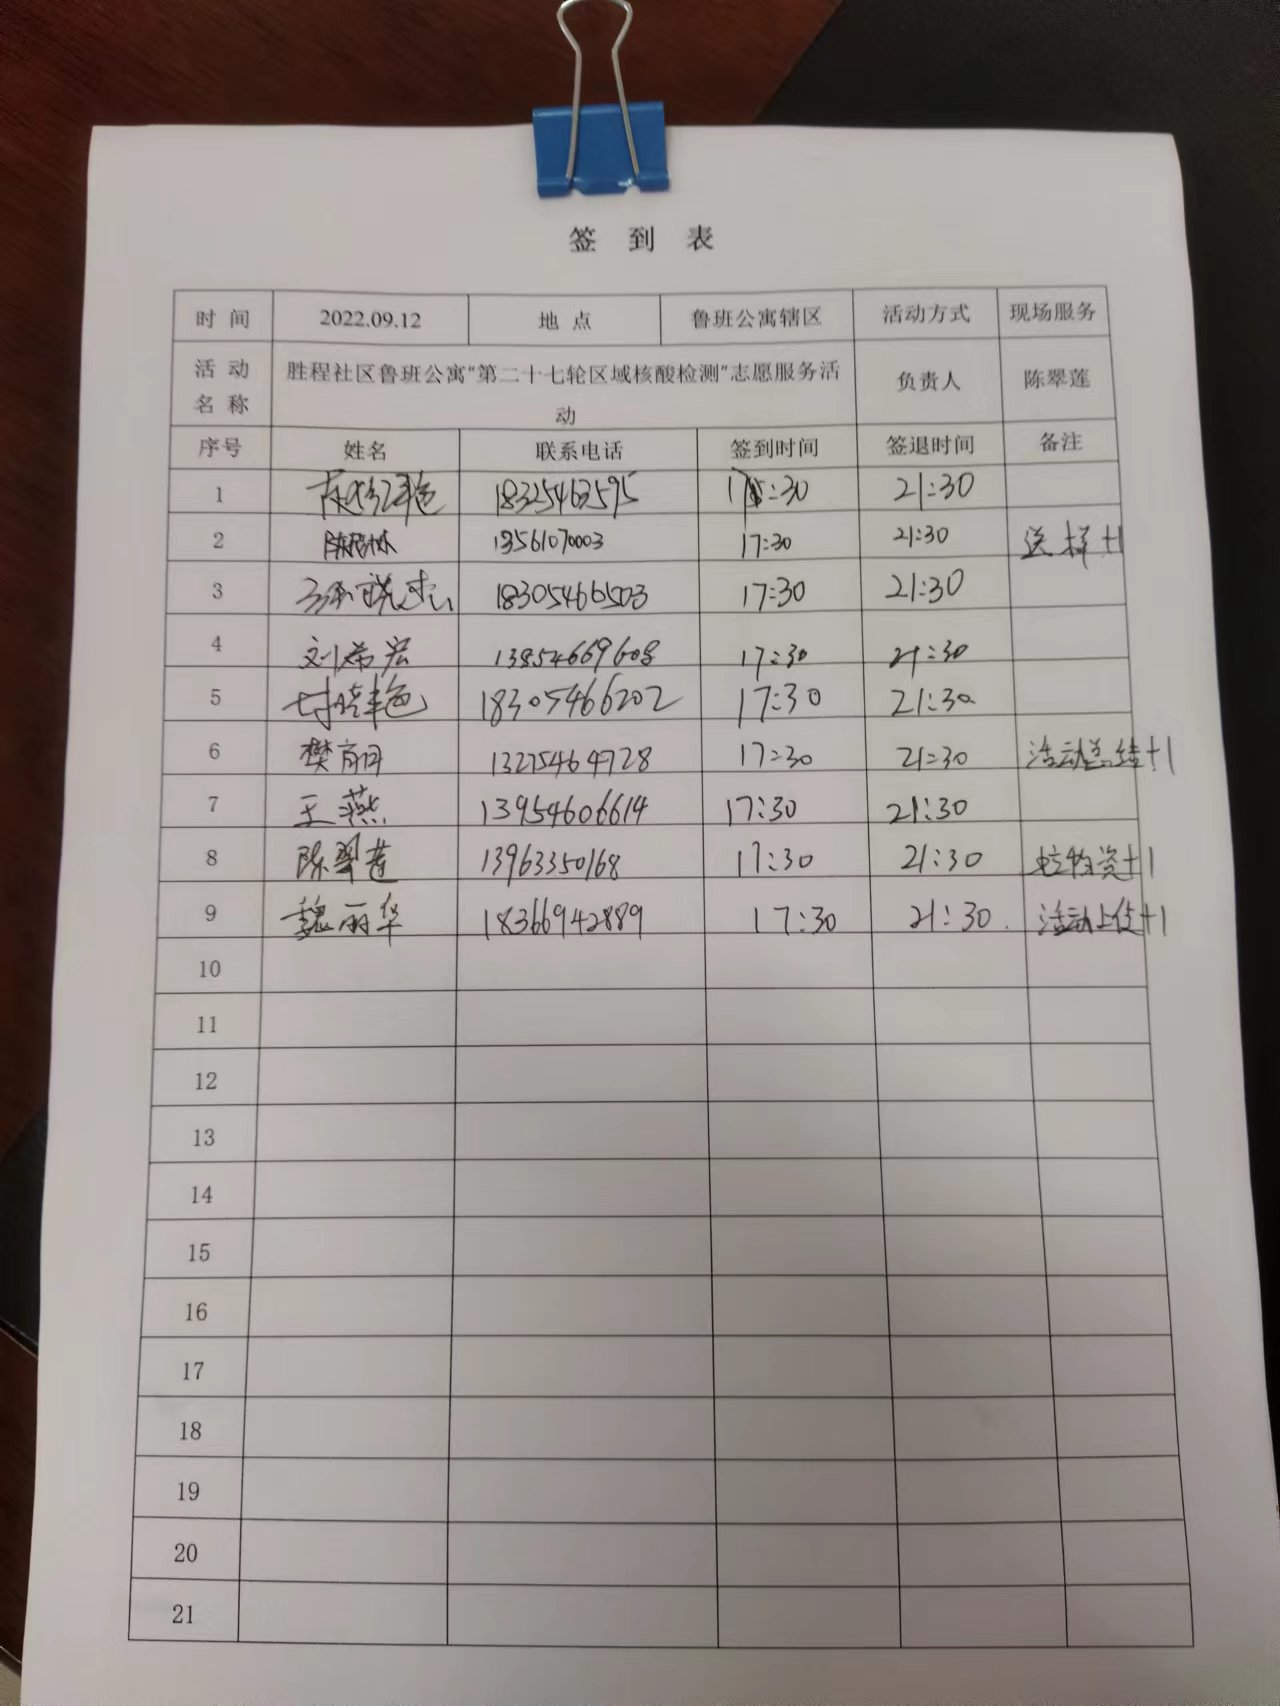 签 到 表
时 间 2022.09.12 地 点 鲁班公寓辖区 活动方式 现场服务
活 动 名 称 胜程社区鲁班公寓"第二十七轮区域核酸检测"志愿服务活动 负责人 陈翠莲
序号 姓名 联系电话 签到时间 签退时间 备注
1 18325463595 17:30 21:30
2 13561070003 17:30 21:30 送样+1
3 18305466503 17:30 21:30
4 刘希宏 13854669608 17:30 21:30
5 18305466202 17:30 21:30
6 樊育丽 13275464728 17:30 21:30 活动总结+1
7 王燕 13954606614 17:30 21:30
8 陈翠莲 13963350168 17:30 21:30 物资+1
9 魏丽华 18366942889 17:30 21:30 活动上传+1
10
11
12
13
14
15
16
17
18
19
20
21